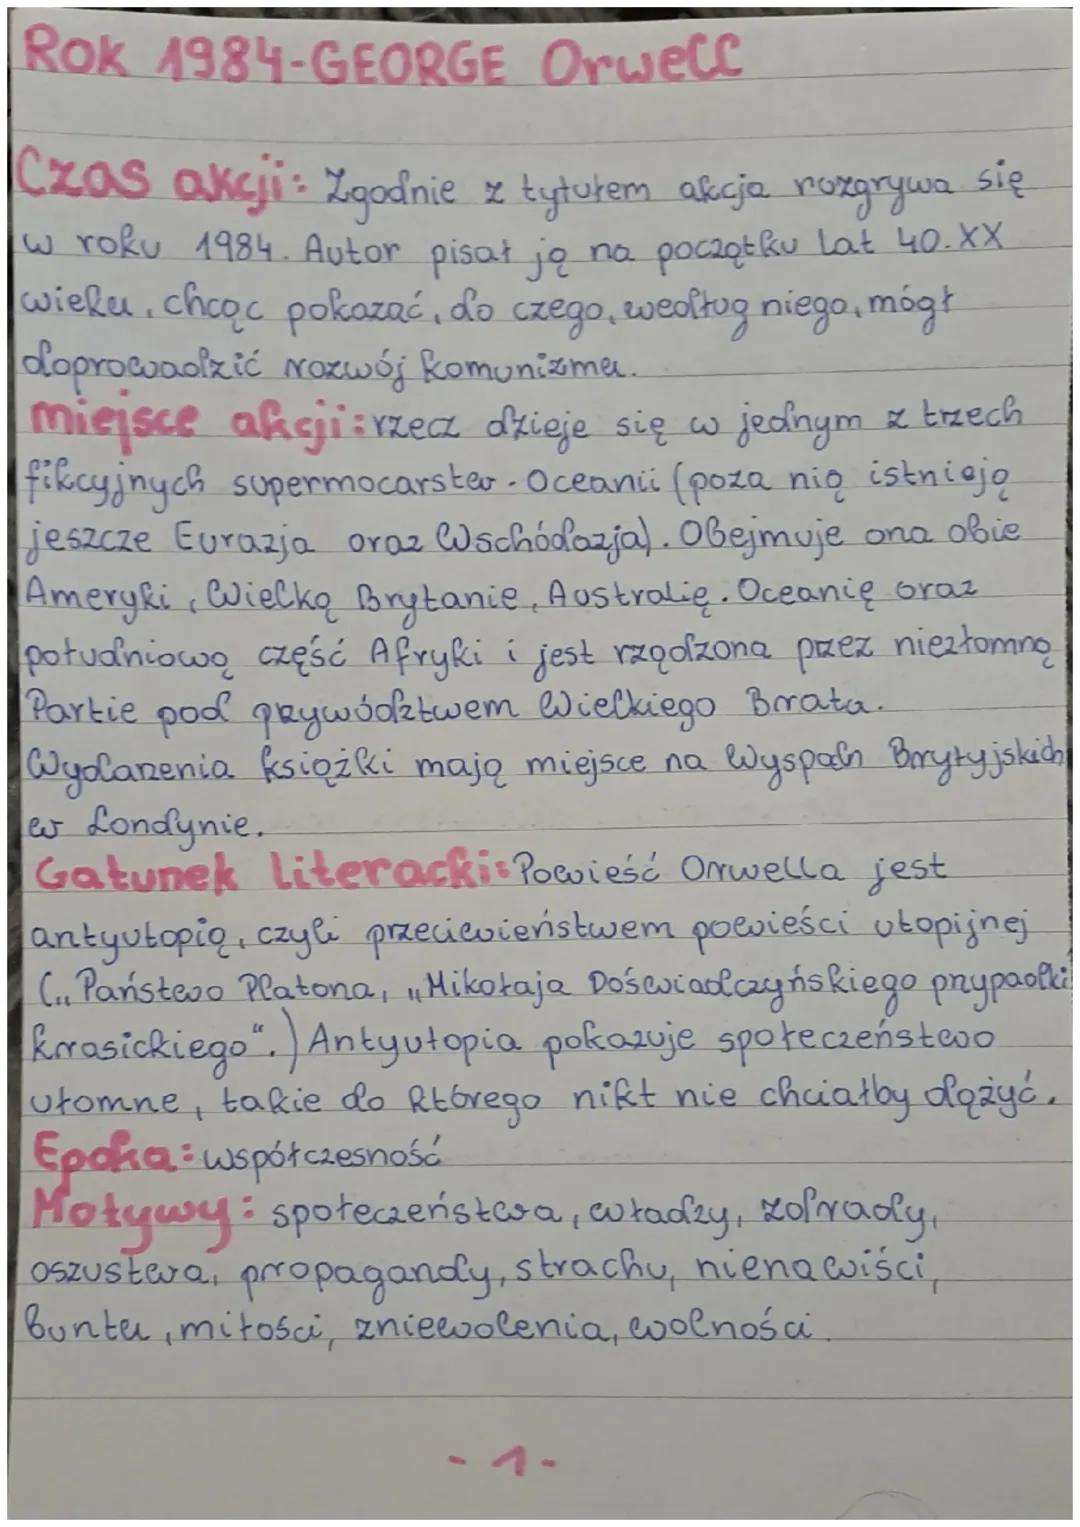 Rok 1984-GEORGE Orwell
Czas akcji: Zgodnie z tytułem akcja rozgrywa się
w roku 1984. Autor pisał ją na początku lat 40.XX
wieku, chcąc pokazać, do czego, według niego, mógł
doprowadzić rozwój komunizmu.
miejsce akcji: rzecz dzieje się w jednym z trzech
fikcyjnych supermocarstw - Oceanii (poza nią istnieją
jeszcze Eurazja oraz Wschódazja). Obejmuje ona obie
Ameryki, Wielką Brytanie, Australię. Oceanię oraz
południową część Afryki i jest rządzona przez niezłomną
Partie pod przywództwem Wielkiego Brata.
Wydarzenia książki mają miejsce na Wyspach Brytyjskich
w Londynie.
Gatunek literacki: Powieść Orwella jest
antyutopią, czyli przeciwieństwem powieści utopijnej
(„Państwo Platona, „Mikołaja Doświadczyńskiego przypadki
Krasickiego“.) Antyutopia pokazuje społeczeństwo
ułomne, takie do którego nikt nie chciałby dążyć.
Epoka: współczesność
Motywy: społeczeństwa, władzy, zdrady,
oszustwa, propagandy, strachu, nienawiści,
buntu, miłości, zniewolenia, wolności.
- 1 -